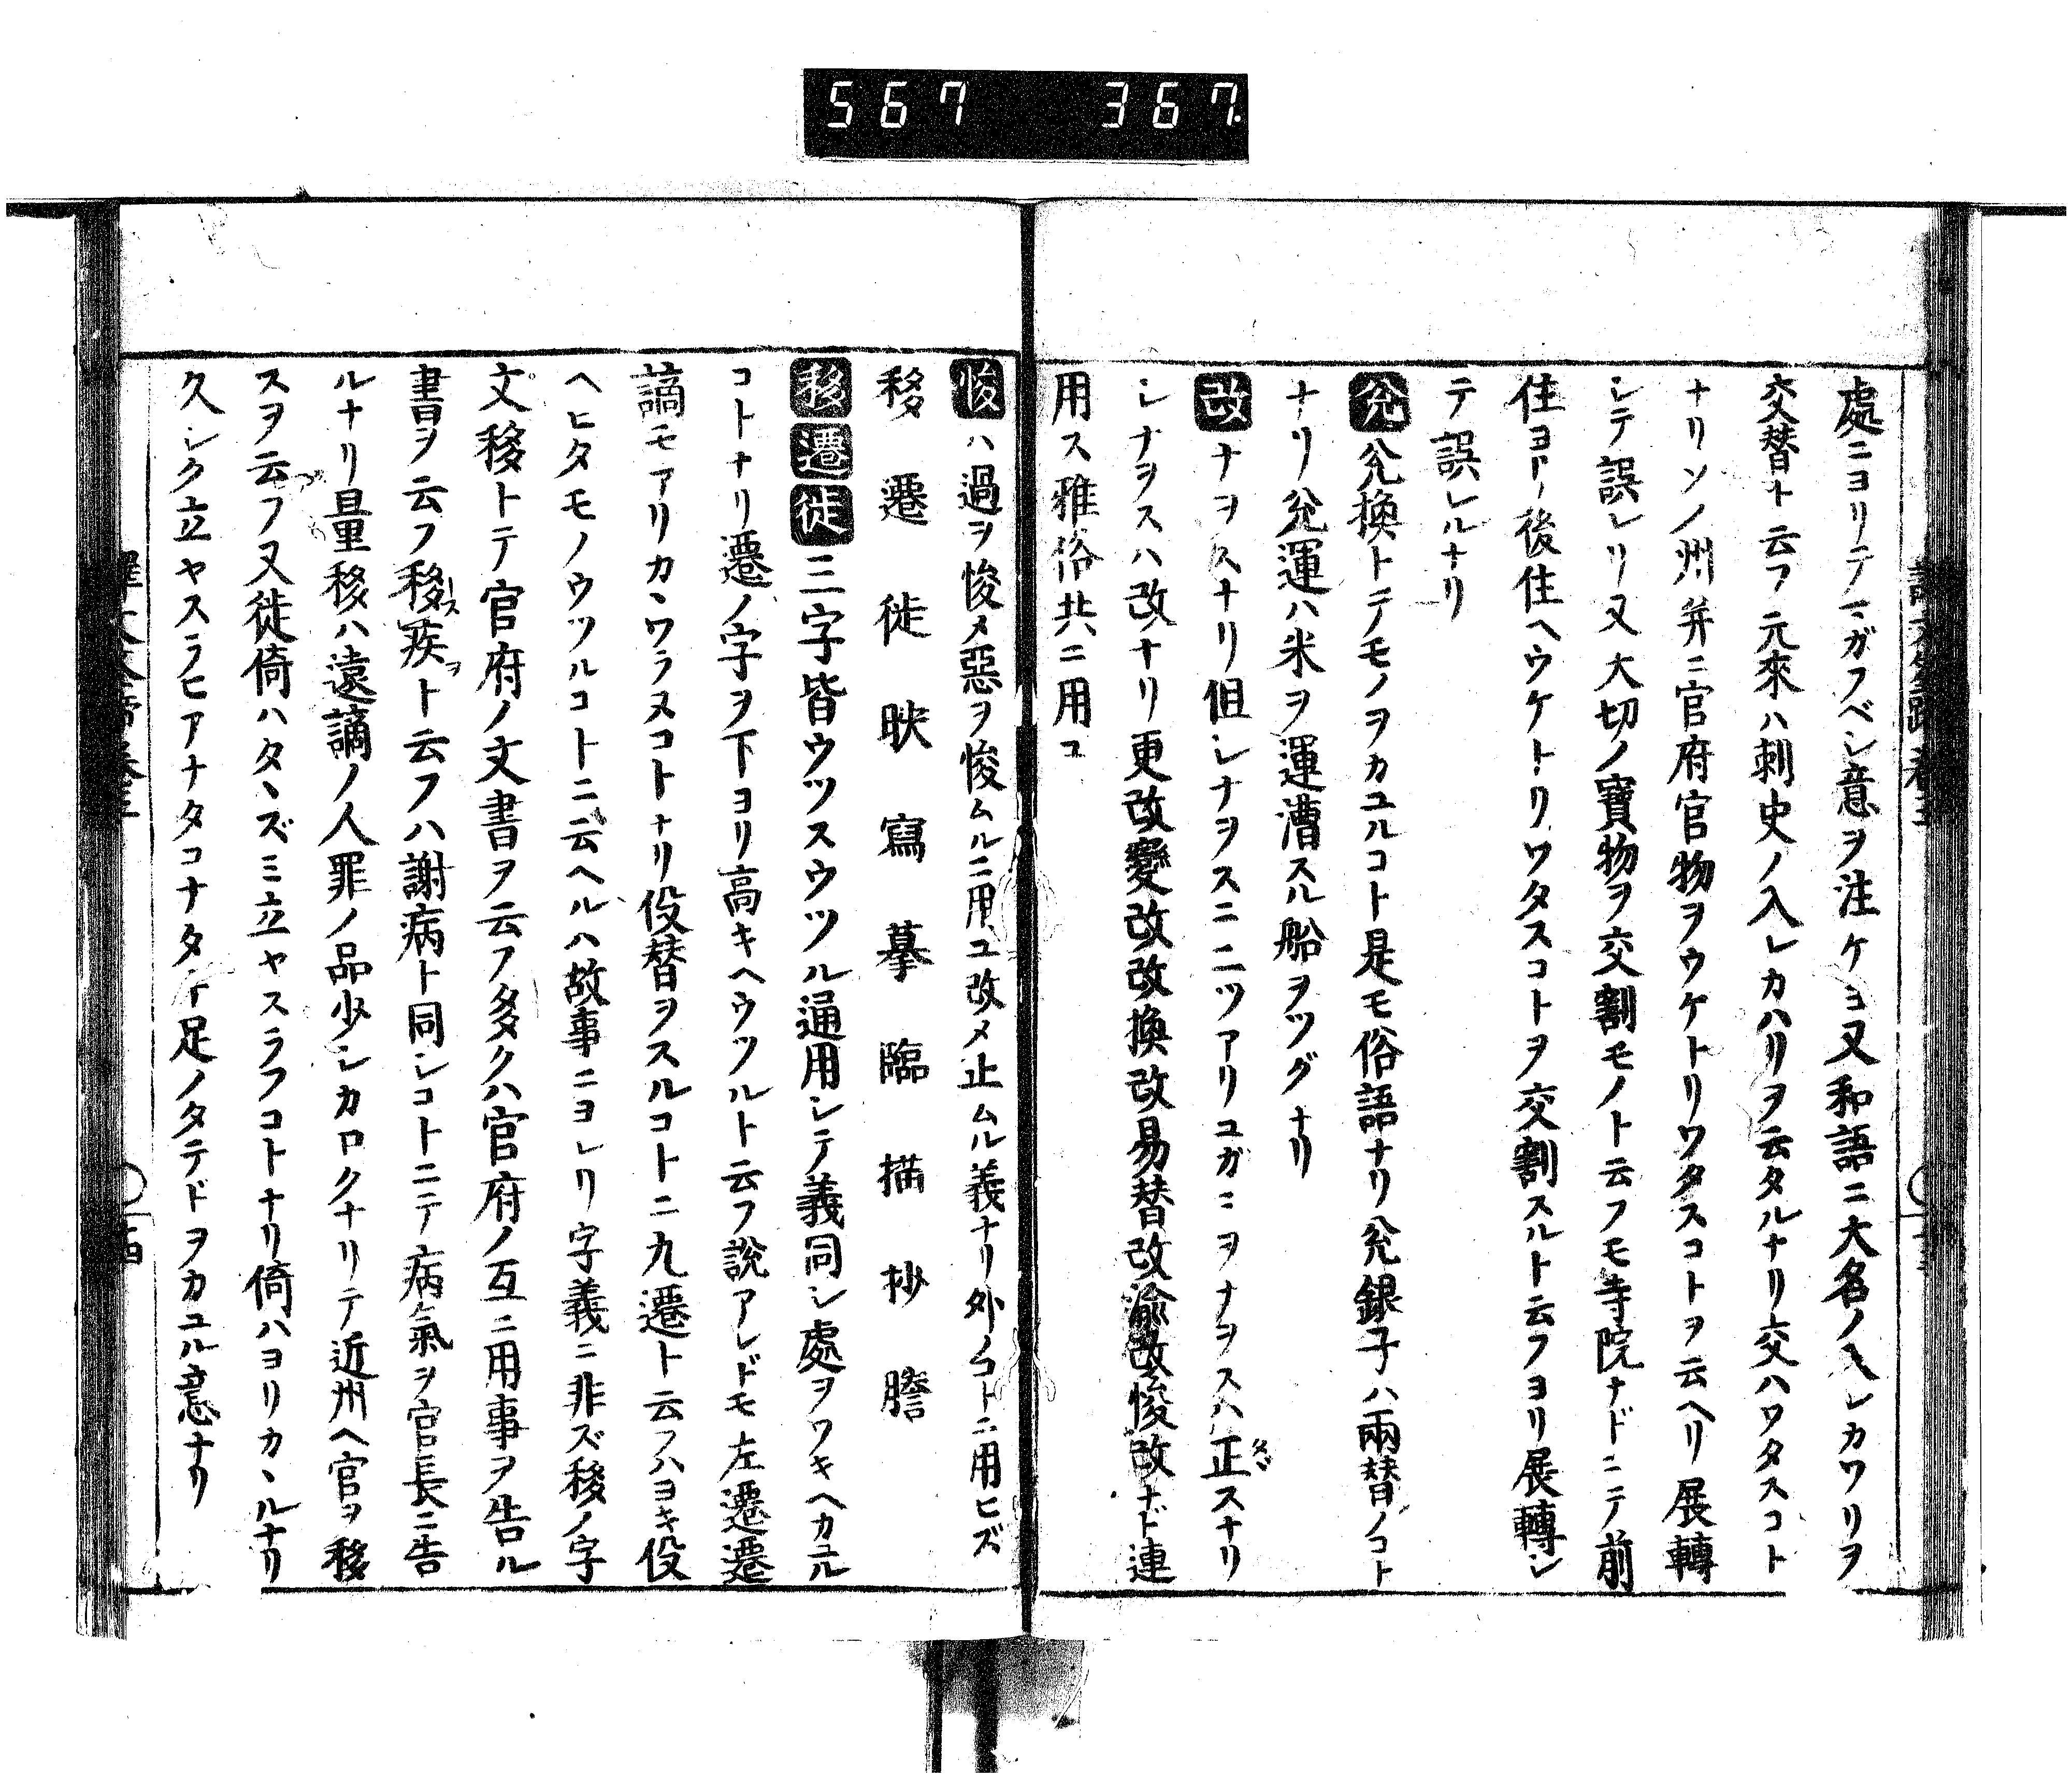 567 367.
處ニヨリテマガフベシ意ヲ注ケヨ又和語ニ大名ノ入レカワリヲ
交替ト云フ元來ハ刺史ノ入レカハリヲ云タルナリ交ハワタスコト
ナリソノ州并ニ官府官物ヲウケトリワタスコトヲ云ヘリ展轉
シテ誤レリ又大切ノ寶物ヲ交割モノト云フモ寺院ナドニテ前
住ヨリ後住ヘウケトリワタスコトヲ交割スルト云フヨリ展轉シ
テ誤レルナリ
兊 兊換トテモノヲカユルコト是モ俗語ナリ兊銀子ハ兩替ノコト
ナリ兊運ハ米ヲ運漕スル船ヲツグナリ
改 ナヲスナリ但シナヲスニ二ツアリユガミヲナヲスハ正スナリ
シナヲスハ改ナリ更改變改改換改易替改渝改悛改ナド連
用ス雅俗共ニ用ユ
悛 ハ過ヲ悛メ惡ヲ悛ムルニ用ユ改メ止ムル義ナリ外ノコトニ用ヒズ
移 遷 徙 映 寫 摹 臨 描 抄 謄
移 遷 徙 三字皆ウツスウツル通用シテ義同シ處ヲワキヘカユル
コトナリ遷ノ字ヲ下ヨリ高キヘウツルト云フ說アレドモ左遷遷
謫モアリカヽワラヌコトナリ役替ヲスルコトニ九遷ト云フハヨキ役
ヘヒタモノウツルコトニ云ヘルハ故事ニヨレリ字義ニ非ズ移ノ字
文移トテ官府ノ文書ヲ云フ多クハ官府ノ互ニ用事ヲ告ル
書ヲ云フ移疾ト云フハ謝病ト同シコトニテ病氣ヲ官長ニ告
ルナリ量移ハ遠謫ノ人罪ノ品少シカロクナリテ近州ヘ官ヲ移
スヲ云フ又徙倚ハタヽズミ立ヤスラフコトナリ倚ハヨリカヽルナリ
久シク立ヤスラヒアナタコナタト足ノタテドヲカユル意ナリ